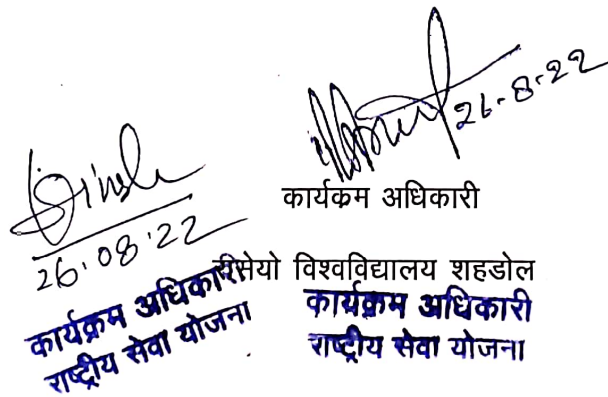 26-8-22
कार्यक्रम अधिकारी
26.08.22
रासेयो विश्वविद्यालय शहडोल
कार्यक्रम अधिकारी
राष्ट्रीय सेवा योजना
कार्यक्रम अधिकारी
राष्ट्रीय सेवा योजना